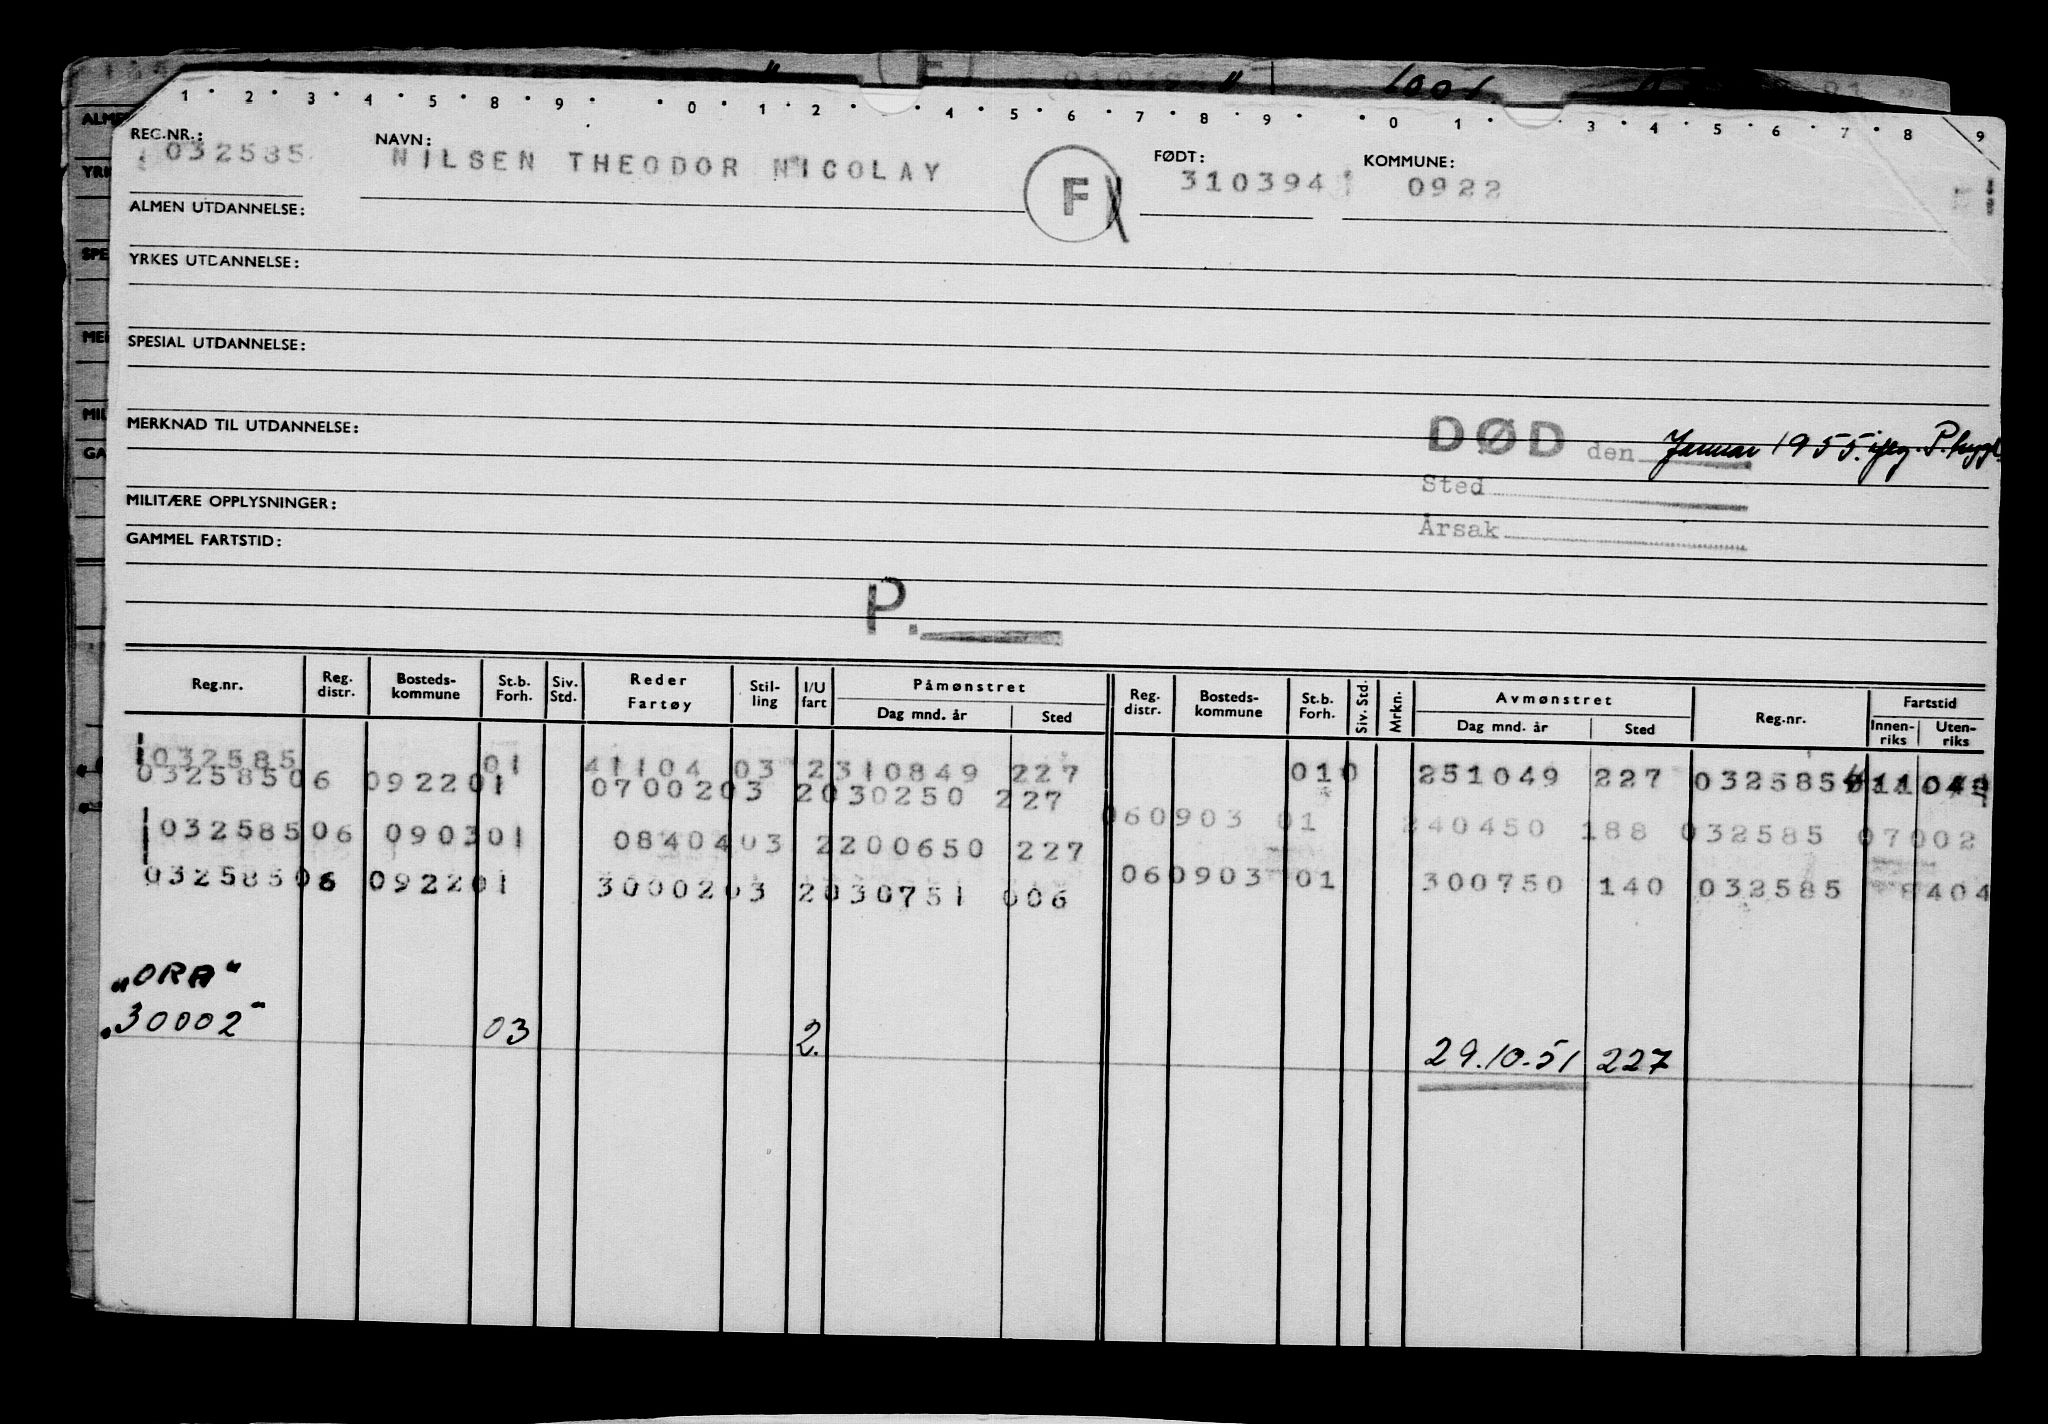 1 · 2 · 3 · 4 · 5 · 8 · 9 · · 0 · 1 · 2 · · 4 · 5 · 6 · 7 · 8 · 9 · · 0 1 · · 3 · 4 · 5 · 6 · 7 · 8 · 9
REG.NR.: 032585 NAVN: NILSEN THEODOR NICOLAY F FØDT: 310394 KOMMUNE: 0922
ALMEN UTDANNELSE:
YRKES UTDANNELSE:
SPESIAL UTDANNELSE:
MERKNAD TIL UTDANNELSE:
DØD den Januar 1955. iflg. P.
Sted
MILITÆRE OPPLYSNINGER:
Årsak
GAMMEL FARTSTID:
P.
Reg.nr. Reg. distr. Bosteds-kommune St.b. Forh. Siv. Std. Reder Fartøy Stil-ling I/U fart Påmønstret Dag mnd. år Sted Reg. distr. Bosteds-kommune St.b. Forh. Siv. Std. Mrkn. Avmønstret Dag mnd. år Sted Reg.nr. Fartstid Innen-riks Uten-riks
032585 01 41104 03 2310849 227 010 251049 227 032585
03258506 092201 0700203 2030250 227
060903 01 240450 188 032585 07002
03258506 090301 0840403 2200650 227
060903 01 300750 140 032585 8404
03258506 092201 3000203 2030751 006
„ORA"
„30002" 03 2. 29.10.51 227